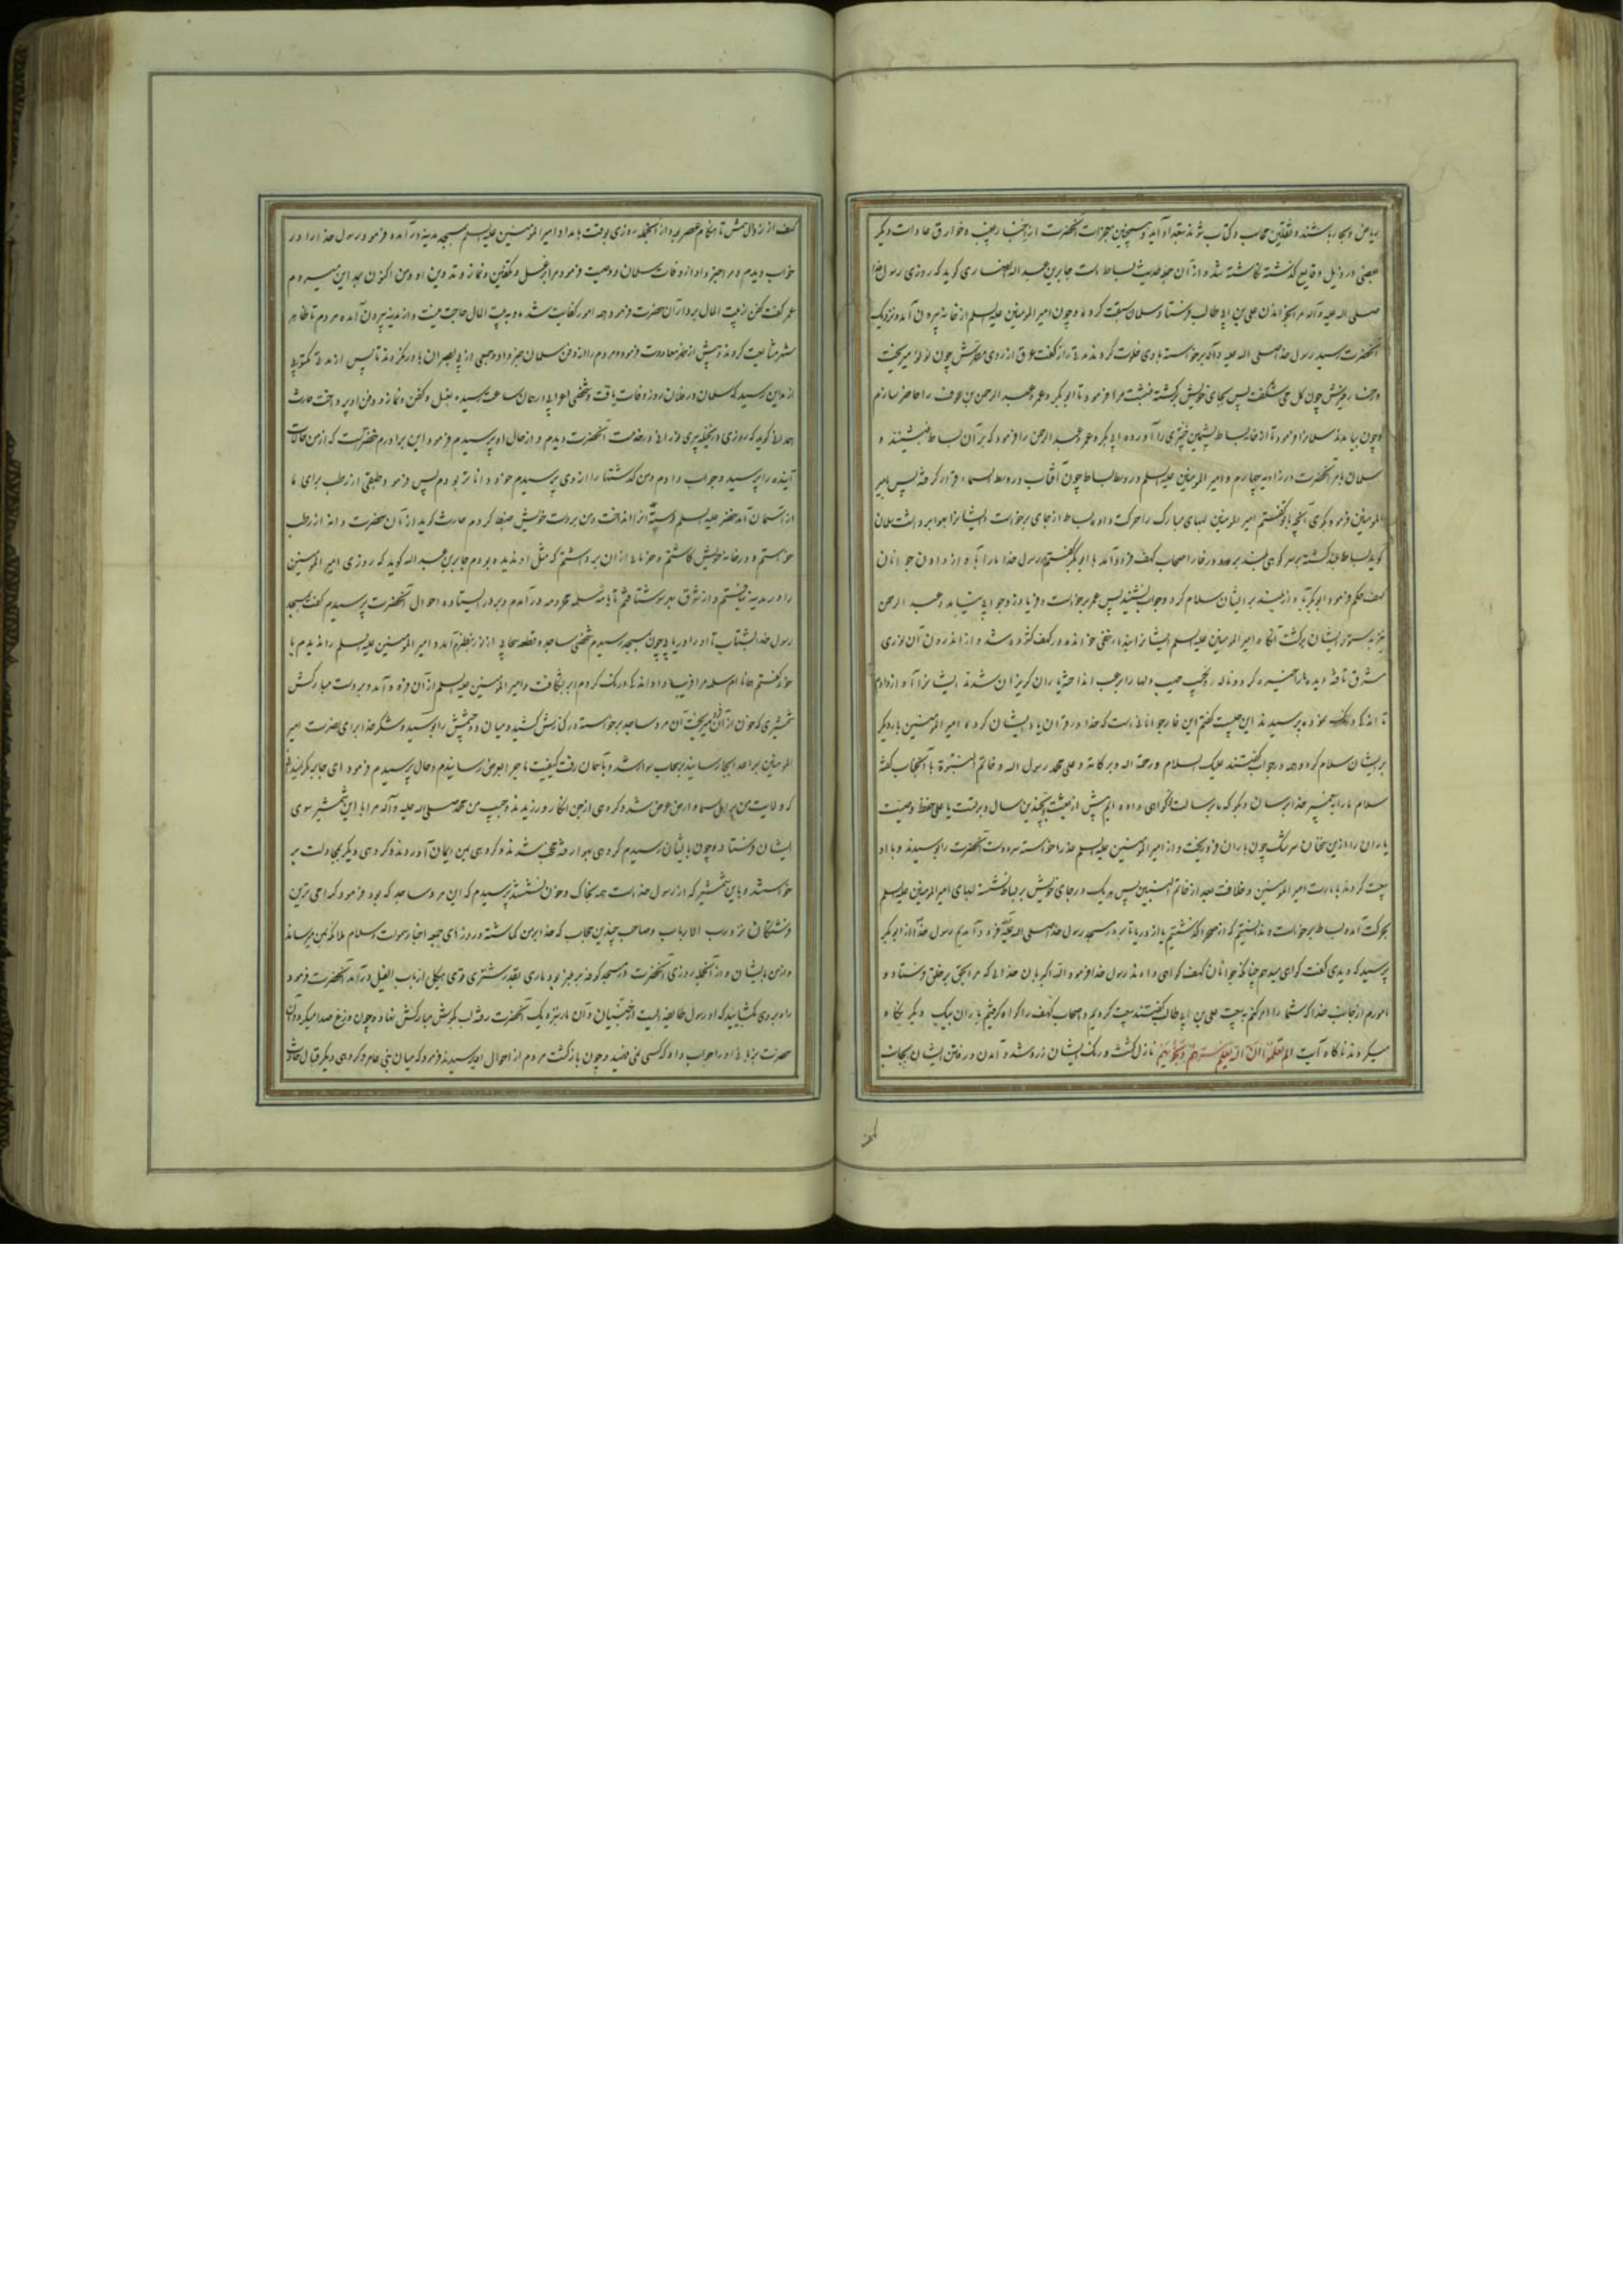 ریاض و بحار باشند و ثقلین محاسب و کتاب شوند بتعداد آید و همچنین معجزات آنحضرت از اخبار بغیب و خوارق عادات دیگر
بعضی در ذیل وقایع گذشته نگاشته شد و از آن جمله حدیث بساط است جابر بن عبد الله انصاری گوید که روزی رسول خدا
صلی الله علیه و آله مرا بخواندن علی بن ابی طالب فرستاد و سلمان سبقت کرد و چون امیر المومنین علیه السلم از خانه بیرون آمد و نزدیک
آنحضرت رسید رسول خدا صلی الله علیه و آله برخواسته با وی خلوت کردند راز گفت عرق از روی مبارکش چون لولو میریخت
و رخسارش چون گل می شکفت پس بجای خویش برگشته بنشست مرا فرمود تا ابو بکر و عمر و عبد الرحمن بن عوف را حاضر سازم
و چون بیامدند سلمانرا فرمود تا از خانه بساط پشمین خیبری را آورده ابی بکر و عمر و عبد الرحمن را فرمود که بر آن بساط بنشینند و
سلمان بامر آنحضرت در زاویه چهارم و امیر المومنین علیه السلم در وسط بساط چون آفتاب در وسط السماء قرار گرفته پس بامیر
المومنین فرمود بگوی آنچه با تو گفتم امیر المومنین لبهای مبارک را حرکت داده بساط از جای برخواست و ایشانرا بهوا برداشت سلمان
گوید بساط بلند گشته بر سر کوهی بلند بر در غار اصحاب کهف فرود آمد با ابو بکر گفتم رسول خدا ما را به آواز دادن جوانان
کهف حکم فرمود ابو بکر به آواز بلند بر ایشان سلام کرد و جواب نشنید پس عمر برخواست و فریاد زد و جوابی نیامد و عبد الرحمن
نیز بدستور ایشان برگشت آنگاه امیر المومنین علیه السلم ایشانرا ندا در کهف گشوده شد و از اندرون آن نوری
مشرق تافته دیده ما را خیره کرد
تا این چیست گفتم این غار جوانانیست که خدا در قرآن یاد ایشان کرده امیر المومنین بار دیگر
بر ایشان سلام کرد و همه در جواب گفتند علیک السلام و رحمة الله و برکاته و علی محمد رسول الله و خاتم النبوة با آنجناب گفته
سلام ما را به پیغمبر خدا برسان و بگو که ما برسالت تو گواهی داده ایم پیش از بعثت بچندین سال و برتست یا علی حفظ وصیت
یاران را از این سخنان سرشک چون باران فرو ریخت و از امیر المومنین علیه السلم عذر خواسته سر و دست آنحضرت را بوسیدند و با او
بیعت کردند بامارت امیر المومنین و خلافت بعد از خاتم النبیین پس هر یک در جای خویش بر بساط نشسته لبهای امیر المومنین علیه السلم
بحرکت آمده بساط برخواست و ندانستیم که از صحرا گذشتیم یا از دریا تا بر در مسجد رسول خدا صلی الله علیه و آله فرود آمدیم رسول خدا از ابو بکر
پرسید که چه دیدی گفت گواهی میدهم چنانکه جوانان کهف گواهی دادند رسول خدا فرمود الله اکبر بآن خدائی که مرا بحق بر خلق فرستاده و
مامورم از جانب خدا که شما را امر کنم به بیعت علی بن ابی طالب گفتند بیعت کردیم و اصحاب کهف را گواه گرفتیم یاران بیک دیگر نگاه
میکردند ناگاه آیت الم یعلموا ان الله یعلم سرهم و نجواهم نازل گشت و رنگ ایشان زرد شد و آمدن و رفتن ایشان بجانب
کهف
کهف از زوال شمس تا هنگام عصر بود و از آنجمله روزی بوقت بامداد امیر المومنین علیه السلم بمسجد مدینه در آمده فرمود رسول خدا را در
خواب دیدم و مرا خبر داد از وفات سلمان و وصیت فرمود مرا بغسل و تکفین و نماز و تدفین او و من اکنون بمداین میروم
عمر گفت کفن از بیت المال بردار آن حضرت فرمود همه امور کفایت شده و به بیت المال حاجت نیست و از مدینه بیرون آمده مردم تا ظاهر
شهر مشایعت کردند و پیش از ظهر معاودت فرمود و مردم را از دفن سلمان خبر داد و جمعی از بی بصران باور نکردند تا پس از مدتی مکتوبی
از مداین رسید که سلمان در فلان روز وفات یافت و شخصی اعرابی در همان ساعت رسیده بغسل و کفن و نماز و دفن او پرداخت حارث
همدانی گوید که روزی در نخیله پیری نورانی در خدمت آنحضرت دیدم و از حال او پرسیدم فرمود این برادرم خضر است که از من حالات
آینده را پرسید و جواب دادم و من گذشتها را از وی پرسیدم خود داناتر بودم پس فرمود طبقی از رطب برای ما
از آسمان آمد خضر علیه السلم هسته آنرا انداخت و من بدست خویش ضبط کردم حارث گوید از آن حضرت دانه از رطب
خواستم و در خانه خویش کاشتم و خرمائی از آن برداشتم که مثل او ندیده بودم جابر بن عبد الله گوید که روزی امیر المومنین
را در مدینه نیافتم و از شوق بهر سو شتافتم تا بخانه ام سلمه محرومه در آمدم و بر در ایستاده احوال آنحضرت پرسیدم گفت بمسجد
رسول خدا بشتاب تا او را دریابی چون بمسجد رسیدم شخصی ساجد و قطعه سحابی از نور بنظرم آمد و امیر المومنین علیه السلم را ندیدم با
خود گفتم همانا ام سلمه مرا فریب داد اندکی درنگ کردم ابر بشکافت و امیر المومنین علیه السلم از آن فرود آمد و بدست مبارکش
شمشیری که خون از آن میریخت آن مرد ساجد برخواسته در کنارش کشید و میان دو چشمش را بوسید و شکر خدا برای نصرت امیر
المومنین بر اعدا بجا رسانید بر سحاب سوار شد و بآسمان رفت کیفیت ماجرا بعرض رسانیدم و حال پرسیدم فرمود ای جابر
که ولایت من بر اهل سماء و ارض عرض شد و گروهی از جن انکار ورزیدند و حبیب من محمد صلی الله علیه و آله مرا با این شمشیر سوی
ایشان فرستاد و چون بایشان رسیدم گروهی بهوا رفته محتجب شدند و گروهی بمن ایمان آوردند و گروهی دیگر بمجادلت بر
خواستند و باین شمشیر که از رسول خداست همه بخاک و خون نشستند پرسیدم که این مرد ساجد که بود فرمود گرامی ترین
فرشتگان نزد رب الارباب و صاحب چندین حجاب که خدا بر من گماشته و در روزهای جمعه اخبار سموات و سلام ملائکه بمن میرساند
و از من بایشان و از آنجمله روزی آنحضرت در مسجد کوفه بر منبر بود ماری بقدر شتری قوی هیکل از باب الفیل در آمد آنحضرت فرمود
راه بر وی بگشایید که او رسول طایفه ایست از جنیان و آن مار نزدیک آنحضرت رفته لب بگوش مبارکش نهاد و چون وزغ صدا میکرد و آن
حضرت بزبانی او را جواب داد که کسی نمی فهمید و چون بازگشت مردم از احوال او پرسیدند فرمود که میان بنی عامر و گروهی دیگر قتال حادث